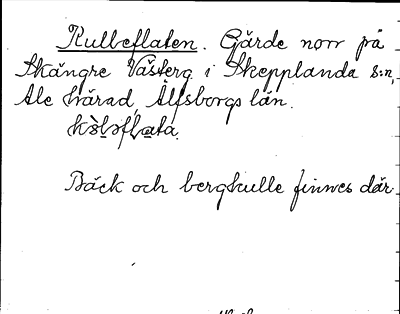 Kulbeflaten. Gärde norr på
Skångre Västerg. i Skepplanda s:n,
Ale härad, Älfsborgs län.
Bäck och bergkulle finnes där